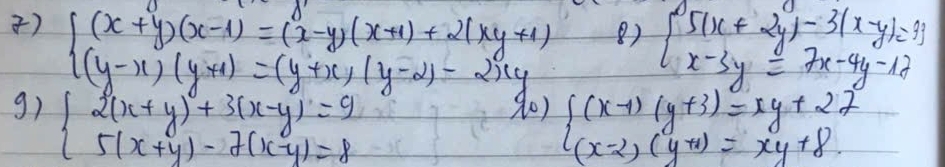 7) { (x+y)(x-1) = (x-y)(x+1) + 2(xy+1)
(y-x)(y+1) = (y+x)(y-2) - 2xy
8) { 5(x+2y) - 3(x-y) = 99
x-3y = 7x-4y-17
9) { 2(x+y) + 3(x-y) = 9
5(x+y) - 7(x-y) = 8
10) { (x-1)(y+3) = xy + 27
(x-2)(y+1) = xy + 8.